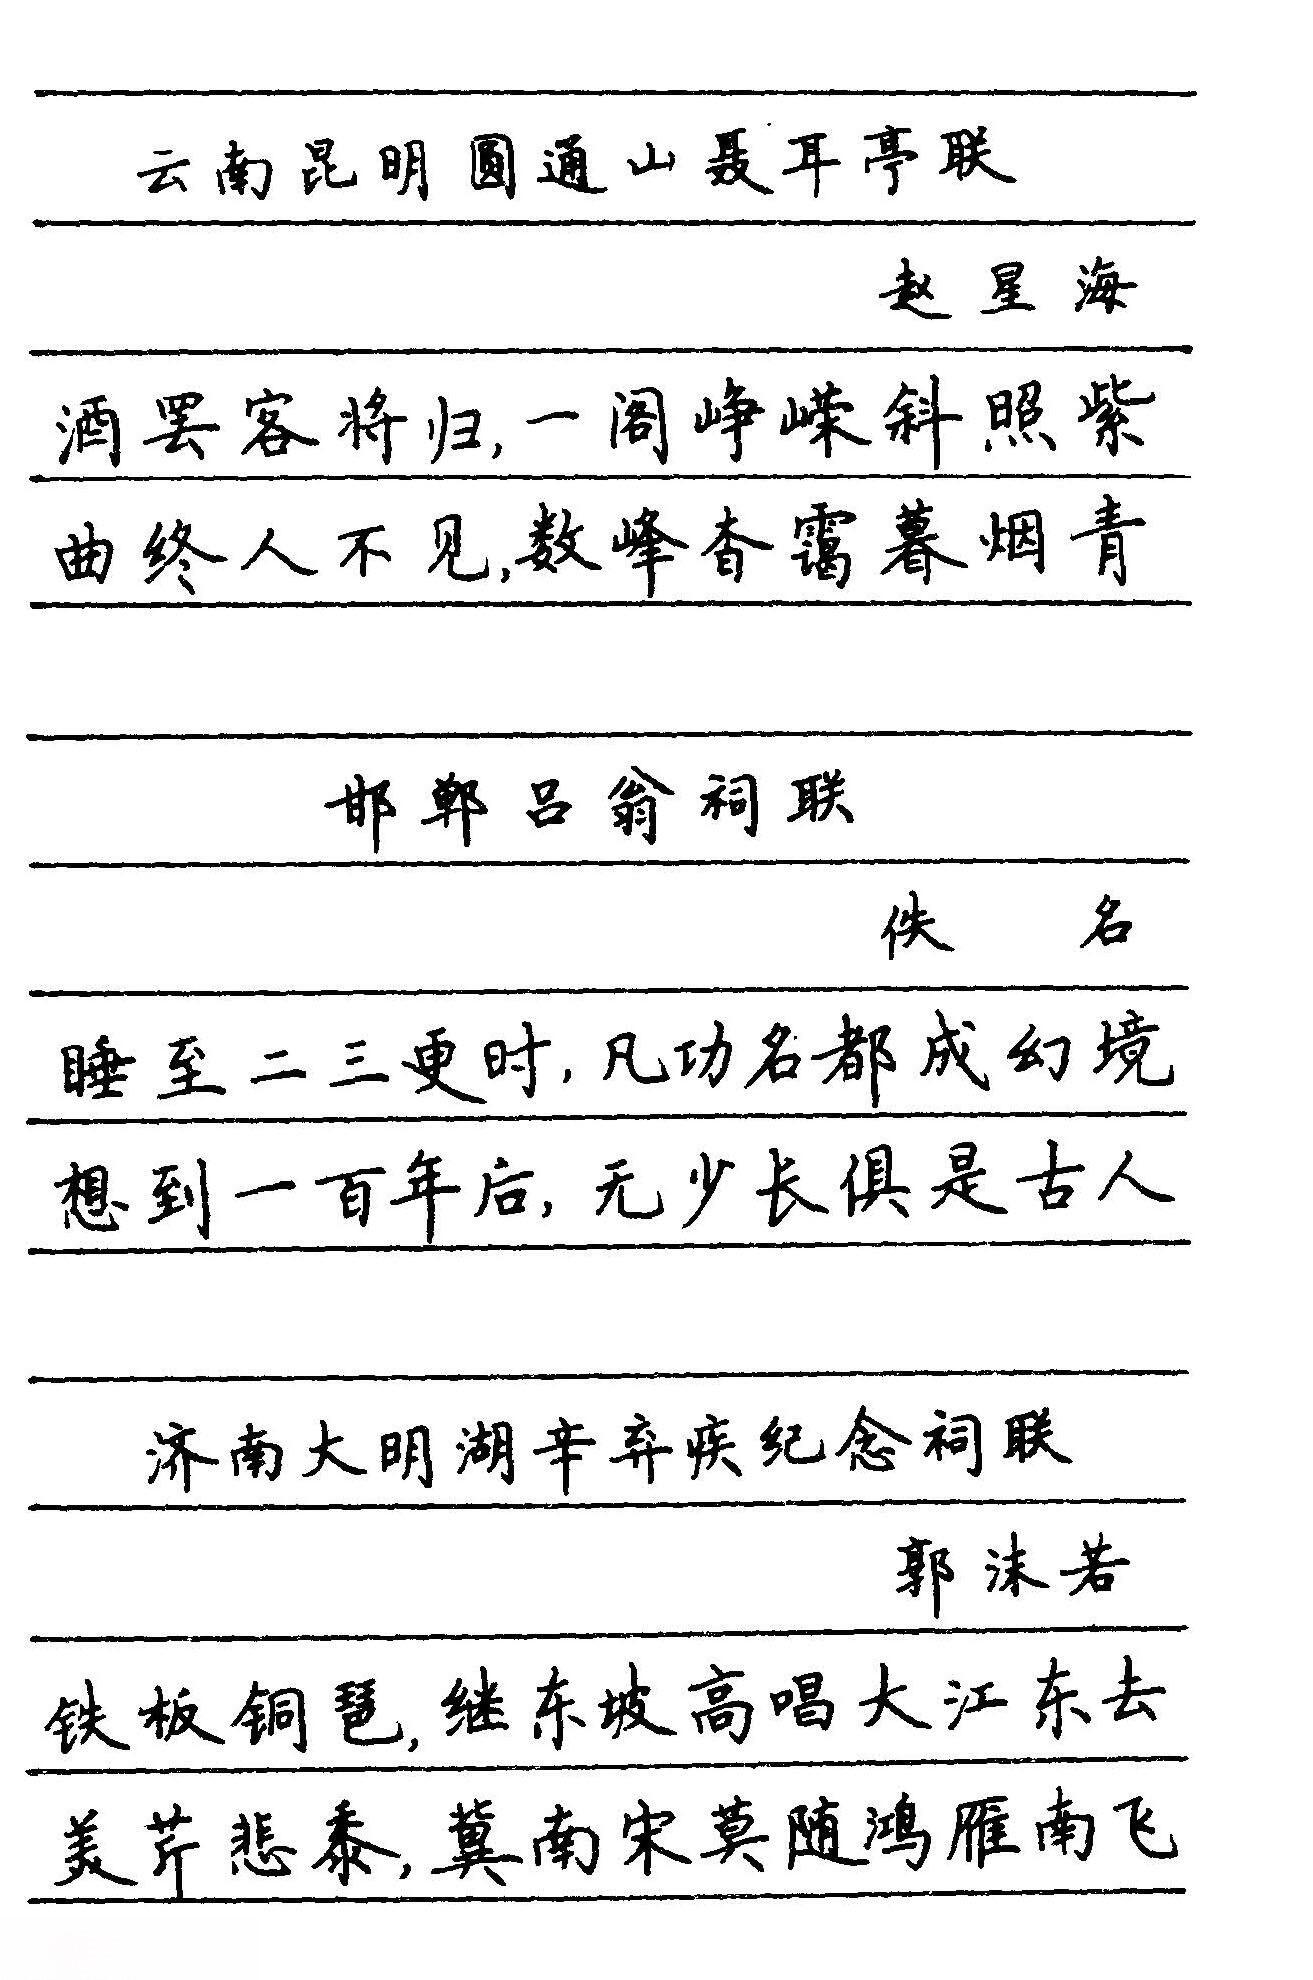 云南昆明圆通山聂耳亭联
赵星海
酒罢客将归,一阁峥嵘斜照紫
曲终人不见,数峰杳霭暮烟青
邯郸吕翁祠联
佚名
睡至二三更时,凡功名都成幻境
想到一百年后,无少长俱是古人
济南大明湖辛弃疾纪念祠联
郭沫若
铁板铜琶,继东坡高唱大江东去
美芹悲黍,冀南宋莫随鸿雁南飞